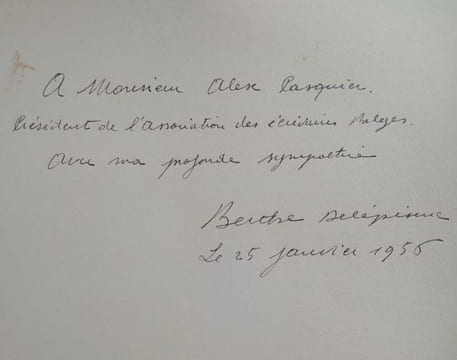 A Monsieur Alex Pasquier.
Président de l'Association des écrivains Belges.
Avec ma profonde sympathie
Berthe Delépinne
Le 25 janvier 1956